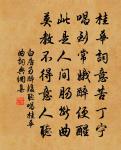 桂華詞意苦丁寧
唱到常娥醉便醒
此是人間腸斷曲
莫教不得意人聽
白居易醉後聽唱桂華
曲詞典網集